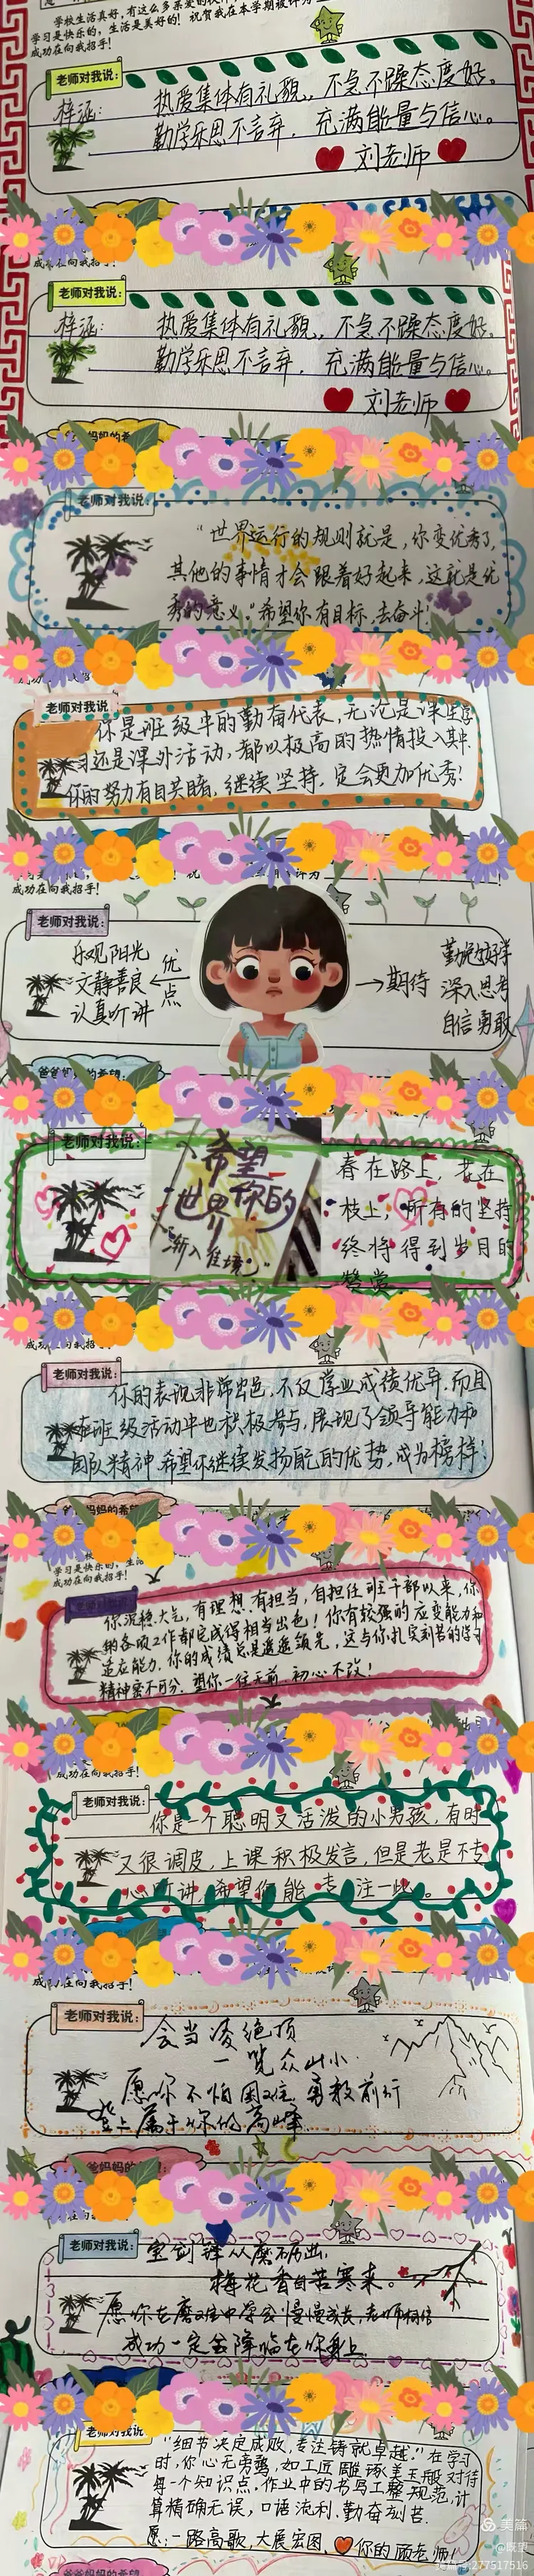 学校生活真好，有这么多亲爱的伙伴
学习是快乐的，生活是美好的！祝贺我在本学期被评为
成功在向我招手！
老师对我说：
梓涵：
热爱集体有礼貌，不急不躁态度好。
勤学乐思不言弃，充满能量与信心。
刘老师
成功在向我招手！
老师对我说：
梓涵：
热爱集体有礼貌，不急不躁态度好。
勤学乐思不言弃，充满能量与信心。
刘老师
妈妈的希
老师对我说：
“世界运行的规则就是，你变优秀了，
其他的事情才会跟着好起来，这就是优
秀的意义。”希望你有目标，去奋斗！
老师对我说
你是班级中的勤奋代表，无论是课堂学
习还是课外活动，都以极高的热情投入其中.
你的努力有目共睹，继续坚持，定会更加优秀！
成功在向我招手！
老师对我说：
乐观阳光
文静善良
认真听讲
优点
期待
勤
深入思考
自信勇敢
爸爸妈妈的希望：
老师对我说：
希望
世界
你的
“渐入佳境”
春在路上，花在
枝上，所有的坚持，
终将得到岁月的
赞赏
老师对我说：
你的表现非常出色，不仅学业成绩优异，而且
在班级活动中也积极参与，展现了领导能力和
团队精神.希望你继续发扬自己的优势，成为榜样！
爸爸妈妈的希望
学习是快乐的，生活
成功在向我招手！
你沉稳大气，有理想，有担当，自担任班干部以来，你
的各项工作都完成得相当出色！你有较强的应变能力和
适应能力，你的成绩总是遥遥领先，这与你扎实刻苦的学习
精神密不可分，望你一往无前，初心不改！
成功在向我招手！
老师对我说：
你是一个聪明又活泼的小男孩，有时
又很调皮，上课积极发言，但是老是不专
心听讲，希望你能专注一些。
成功在向我招手！
老师对我说：
会当凌绝顶
一览众山小.
愿你不怕困难 勇敢前行
登上属于你的高峰.
爸妈妈的
老师对我说：
宝剑锋从磨砺出，
梅花香自苦寒来。
愿你在磨难中学会慢慢成长，老师相信
成功一定会降临在你身上.
老师对我说
“细节决定成败，专注铸就卓越！”在学习
时，你心无旁骛，如工匠雕琢美玉般对待
每一个知识点.作业中的书写工整规范，计
算精确无误，口语流利.勤奋刻苦.
愿：一路高歌，大展宏图，你的顾老师！
美篇
@既望
美篇号:277517516